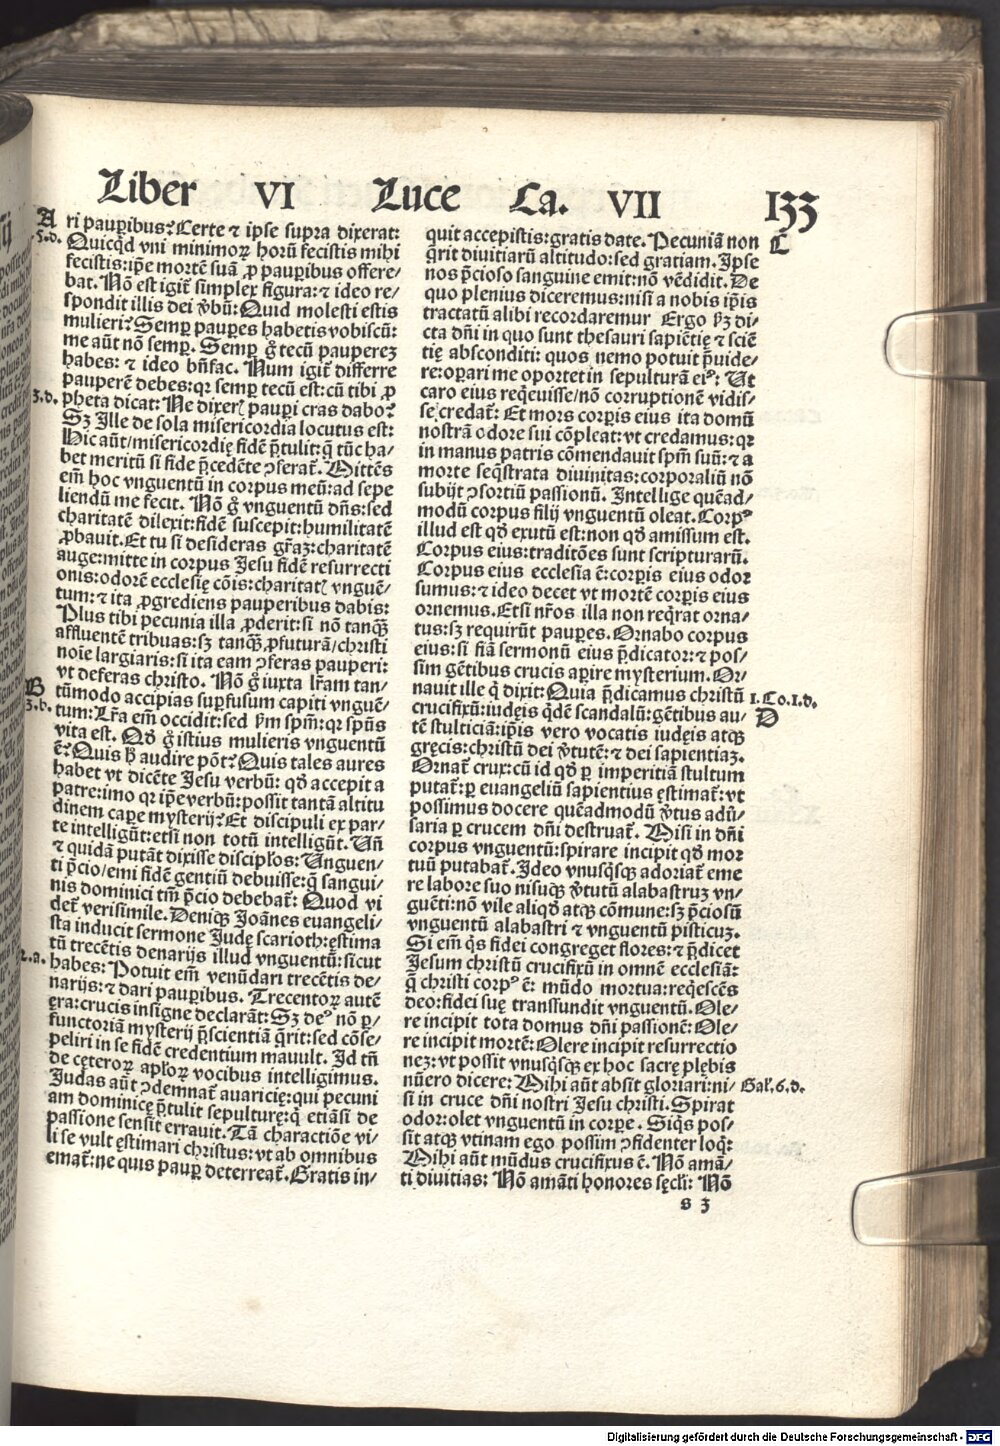 Liber VI Luce Ca. VII 133
A
ri paup̲ibus? Certe ⁊ ipse supra dixerat:
5.d. Quicq̇d vni minimoꝝ horū fecistis mihi
fecistis: ip̄e mortē suā ꝓ paup̲ibus offere/
bat. Nō est igit̄ simplex figura: ⁊ ideo re/
spondit illis dei v̄bū: Quid molesti estis
mulieri? Semp̲ paup̲es habetis vobiscū:
me aūt nō semp̲. Semp̲ g̊ tecū pauperez
habes: ⁊ ideo bn̄fac. Num igit̄ differre
pauperē debes: qꝛ semp̲ tecū est: cū tibi ꝓ
3.d. pheta dicat: Ne dixer̄ paup̲i cras dabo?
Sꝫ Ille de sola misericordia locutus est:
Hic aūt/ misericordię fidē p̄tulit: q̄ tūc ha/
bet meritū si fide p̄cedēte ꝯferat̄. Mittēs
em̄ hoc vnguentū in corpus meū: ad sepe
liendū me fecit. Nō g̊ vnguentū dn̄s: sed
charitatē dilexit: fidē suscepit: humilitatē
ꝓbauit. Et tu si desideras gr̄aꝫ: charitatē
auge: mitte in corpus Jesu fidē resurrecti
onis: odorē ecclesię cōis: charitat̄ vnguē/
tum: ⁊ ita ꝓgrediens pauperibus dabis:
Plus tibi pecunia illa ꝓderit: si nō tanqꝫ̄
affluentē tribuas: sꝫ tanqꝫ̄ ꝓfuturā/ christi
noīe largiaris: si ita eam ꝯferas pauperi:
vt deferas christo. Nō g̊ iuxta lr̄am tan/
B tūmodo accipias sup̲fusum capiti vnguē/
3.b. tum: Lr̄a em̄ occidit: sed v̄m spm̄: qꝛ spūs
vita est. Qd̄ g̊ istius mulieris vnguentū
ē? Quis h̄ audire pōt? Quis tales aures
habet vt dicēte Jesu verbū: qd̄ accepit a
patre: imo qꝛ ip̄e verbū: possit tantā altitu
dinem cap̲e mysterij? Et discipuli ex par/
te intelligūt: etsi non totū intelligūt. Uñ
⁊ quidā putāt dixisse discipl̄os: Unguen/
ti p̄cio/ emi fidē gentiū debuisse: q̄ sangui/
nis dominici tm̄ p̄cio debebat̄: Quod vi
det̄ verisimile. Deniqꝫ Joānes euangeli/
sta inducit sermone Judę scarioth: ęstima
tū trecētis denarijs illud vnguentū: sicut
2.a. habes: Potuit em̄ venūdari trecētis de/
narijs: ⁊ dari paup̲ibus. Trecentoꝝ autē
ęra: crucis insigne declarāt: Sꝫ deꝰ nō p̲/
functoriā mysterij p̄scientiā q̄rit: sed cōse/
peliri in se fidē credentium mauult. Id tn̄
de cęteroꝝ apl̄oꝝ vocibus intelligimus.
Judas aūt ꝯdemnat̄ auaricię: qui pecuni
am dominicę p̄tulit sepulturę: q̄ etiāsi de
passione sensit errauit. Tā charactiōe vi/
li se vult ęstimari christus: vt ab omnibus
emat̄: ne quis paup̲ deterreat̄. Gratis in/
quit accepistis: gratis date. Pecuniā non C
q̄rit diuitiarū altitudo: sed gratiam. Ip̄se
nos p̄cioso sanguine emit: nō vēdidit. De
quo plenius diceremus: nisi a nobis ip̄is
tractatū alibi recordaremur Ergo v̄ꝫ di/
cta dn̄i in quo sunt thesauri sapiētię ⁊ sciē
tię absconditi: quos nemo potuit p̄uide/
re: op̲ari me oportet in sepulturā eiꝰ: Ut
caro eius reqeuisse/ nō corruptionē vidis/
se credat̄: Et mors corp̲is eius ita domū
nostrā odore sui cōpleat: vt credamus: qꝛ
in manus patris cōmendauit spm̄ suū: ⁊ a
morte seq̄strata diuinitas: corporaliū nō
subijt ꝯsortiū passionū. Intellige quēad/
modū corpus filij vnguentū oleat. Corpꝰ
illud est qd̄ exutū est: non qd̄ amissum est.
Corpus eius: traditōes sunt scripturarū.
Corpus eius ecclesia ē: corp̲is eius odor
sumus: ⁊ ideo decet vt mortē corp̲is eius
ornemus. Etsi nr̄os illa non req̄rat orna/
tus: sꝫ requirūt paup̲es. Ornabo corpus
eius: si fiā sermonū eius p̄dicator: ⁊ pos/
sim gētibus crucis ap̲ire mysterium. Or/
nauit ille q̇ dixit: Quia p̄dicamus christū 1.Co.1.d.
crucifixū: iudęis q̇dē scandalū: gētibus au/ D
tē stulticiā: ip̄is vero vocatis iudęis atqꝫ
gręcis: christū dei v̄tutē: ⁊ dei sapientiaꝫ.
Ornat̄ crux: cū id qd̄ p̲ imperitiā stultum
putat̄: p̲ euangeliū sapientius ęstimat̄: vt
possimus docere quēadmodū v̄tus adū/
saria p̲ crucem dn̄i destruat̄. Misi in dn̄i
corpus vnguentū: spirare incipit qd̄ mor
tuū putabat̄. Ideo vnusq̇sqꝫ adoriat̄ eme
re labore suo nisuqꝫ v̄tutū alabastruꝫ vn/
guēti: nō vile aliqd̄ atqꝫ cōmune: sꝫ p̄ciosū
vnguentū alabastri ⁊ vnguentū pisticuꝫ.
Si em̄ q̇s fidei congreget flores: ⁊ p̄dicet
Jesum christū crucifixū in omnē ecclesiā:
q̄ christi corpꝰ ē: mūdo mortua: req̇escēs
deo: fidei suę transfundit vnguentū. Ole/
re incipit tota domus dn̄i passionē: Ole/
re incipit mortē: Olere incipit resurrectio
neꝫ: vt possit vnusq̇sqꝫ ex hoc sacrę plębis
nūero dicere: Mihi aūt absit gloriari: ni/ Gal̄.6.d.
si in cruce dn̄i nostri Jesu christi. Spirat
odor: olet vnguentū in corp̲e. Siq̇s pos/
sit atqꝫ vtinam ego possim ꝯfidenter loq̇:
Mihi aūt mūdus crucifixus ē. Nō amā/
ti diuitias: Nō amāti honores sęcli: Nō
s 3
Digitalisierung gefördert durch die Deutsche Forschungsgemeinschaft - DFG